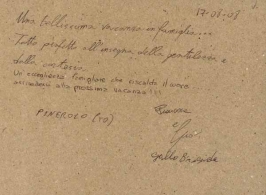 17-08-08
Una bellissima vacanza in famiglia...
Tutto perfetto all'insegna della gentilezza e
della cortesia.
Un complesso familiare che riscalda il cuore
arrivederci alla prossima vacanza!!!
PINEROLO (TO)